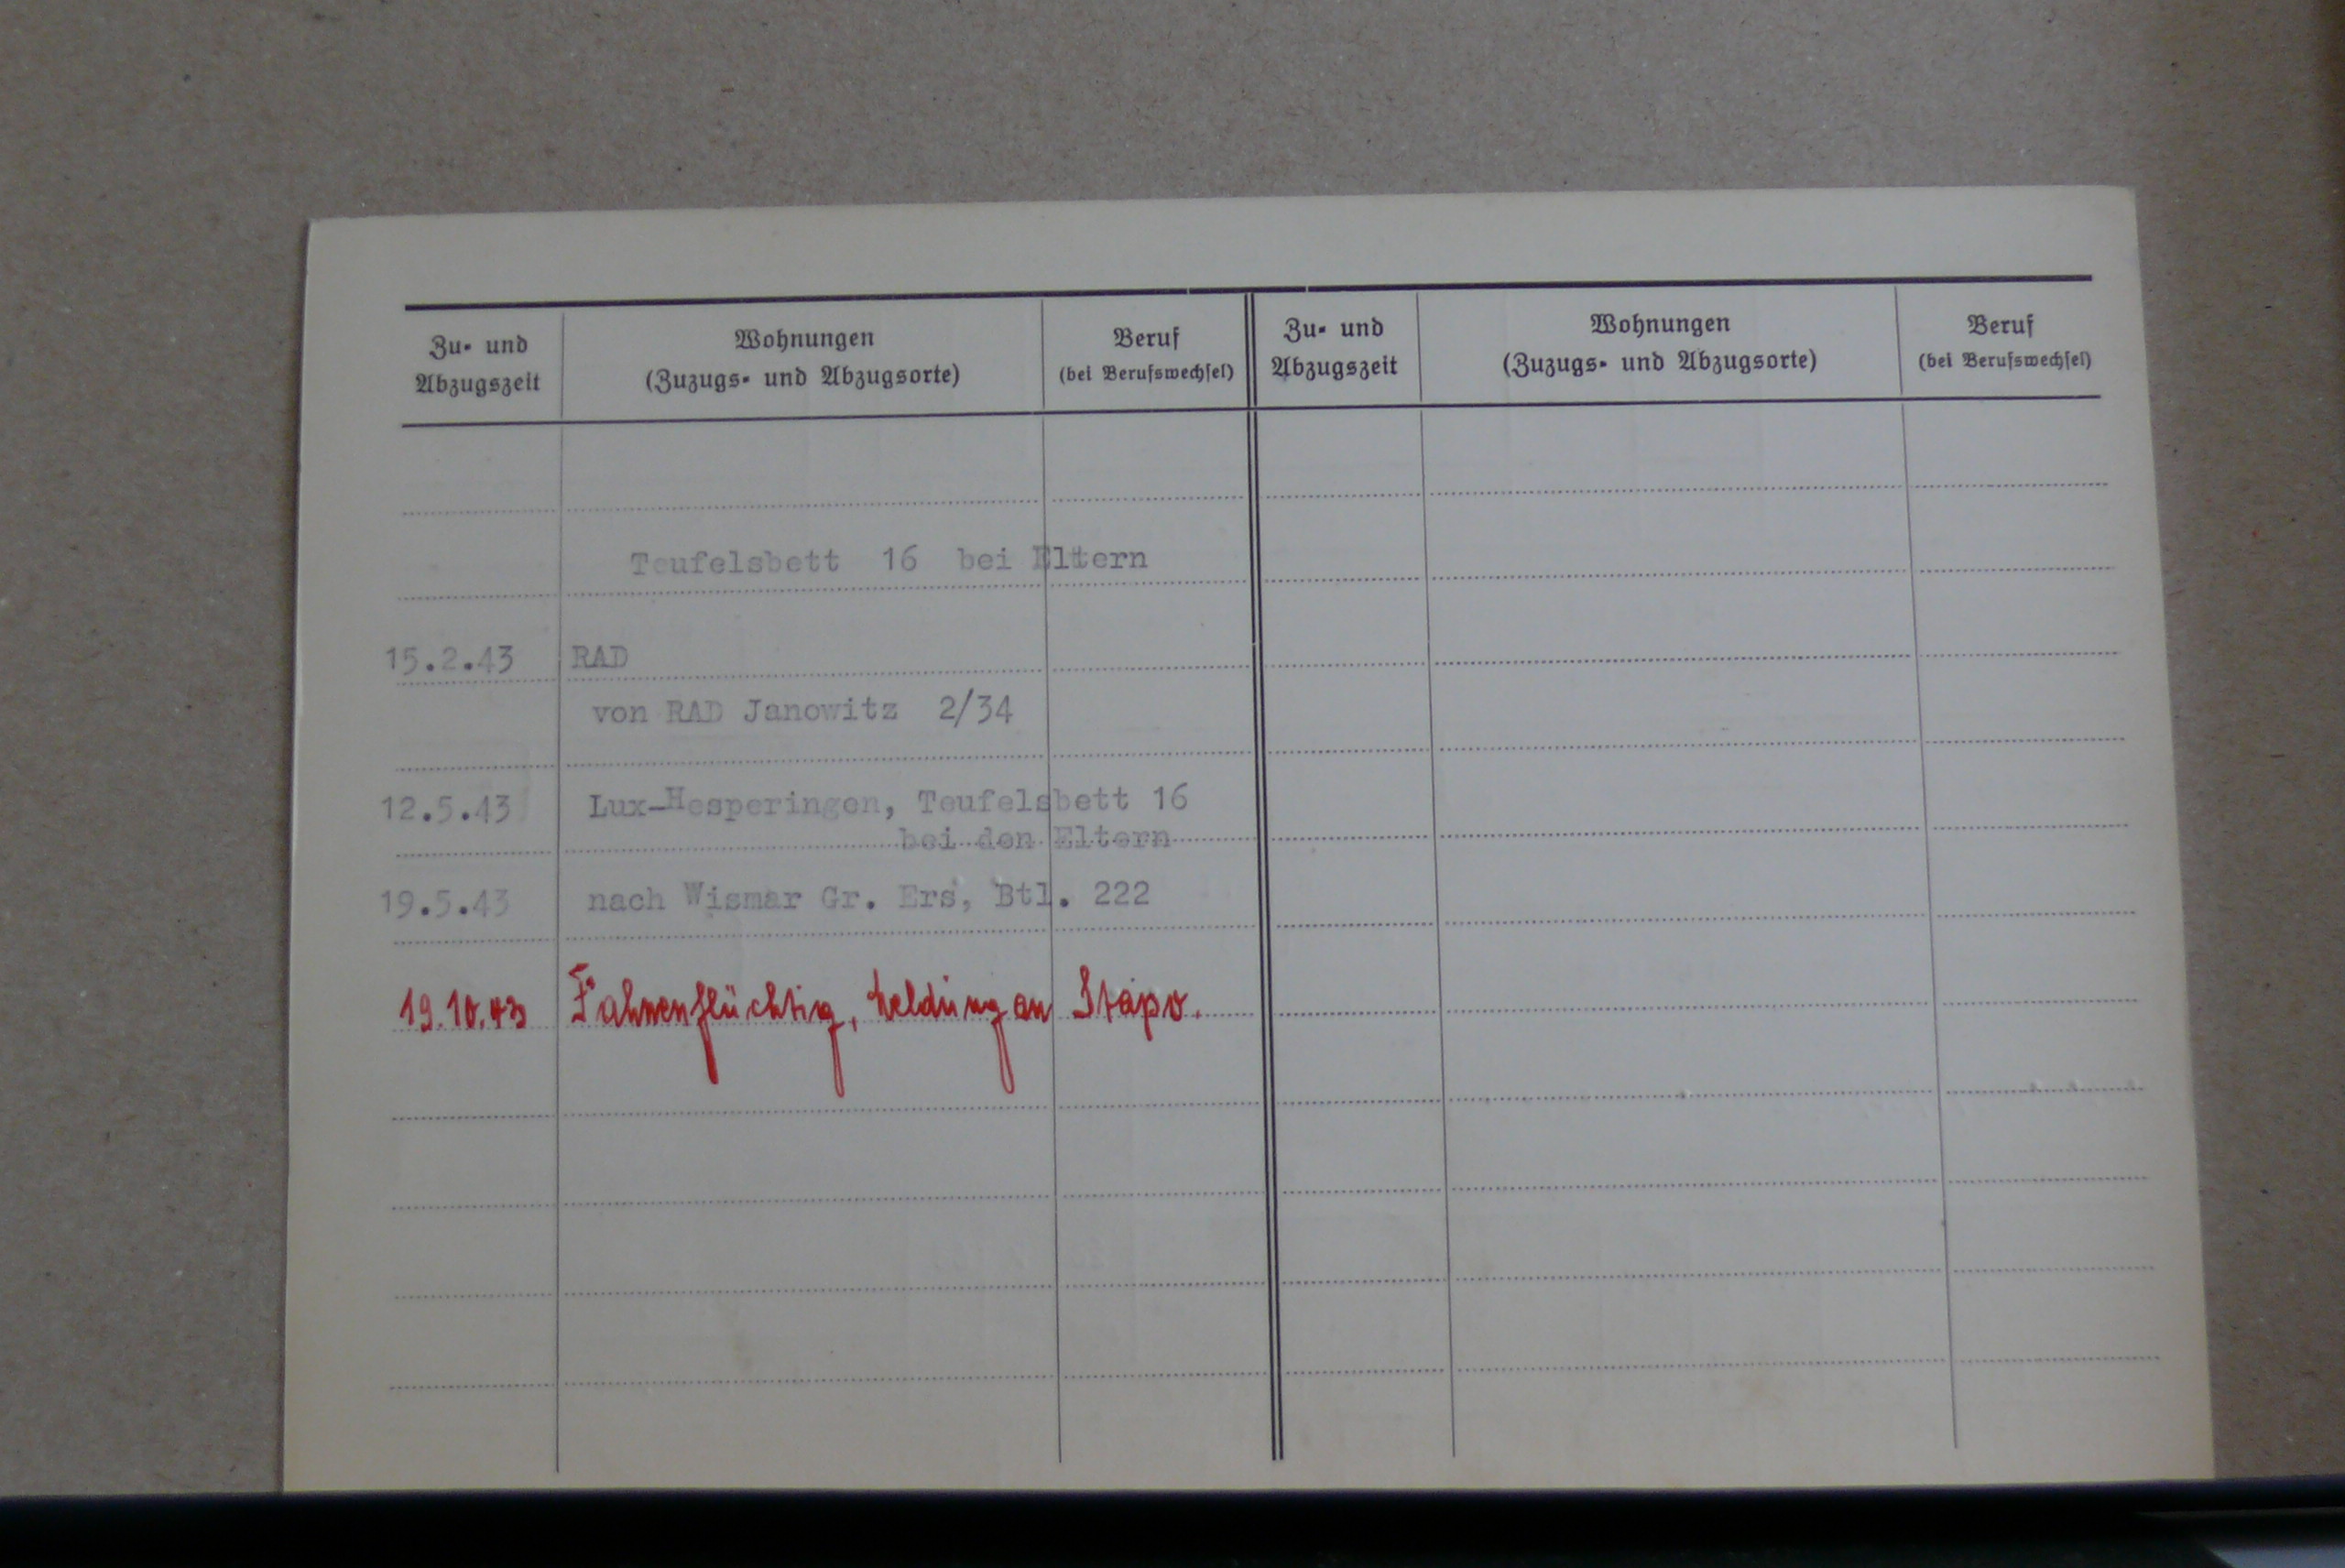 Zu- und Abzugszeit
Wohnungen (Zuzugs- und Abzugsorte)
Beruf (bei Berufswechsel)
Zu- und Abzugszeit
Wohnungen (Zuzugs- und Abzugsorte)
Beruf (bei Berufswechsel)
Teufelsbett 16 bei Eltern
15.2.43 RAD
von RAD Janowitz 2/34
12.5.43 Lux-Hesperingen, Teufelsbett 16
bei den Eltern
19.5.43 nach Wismar Gr. Ers, Btl. 222
19.10.43 Fahnenflüchtig, Meldung an Stapo.